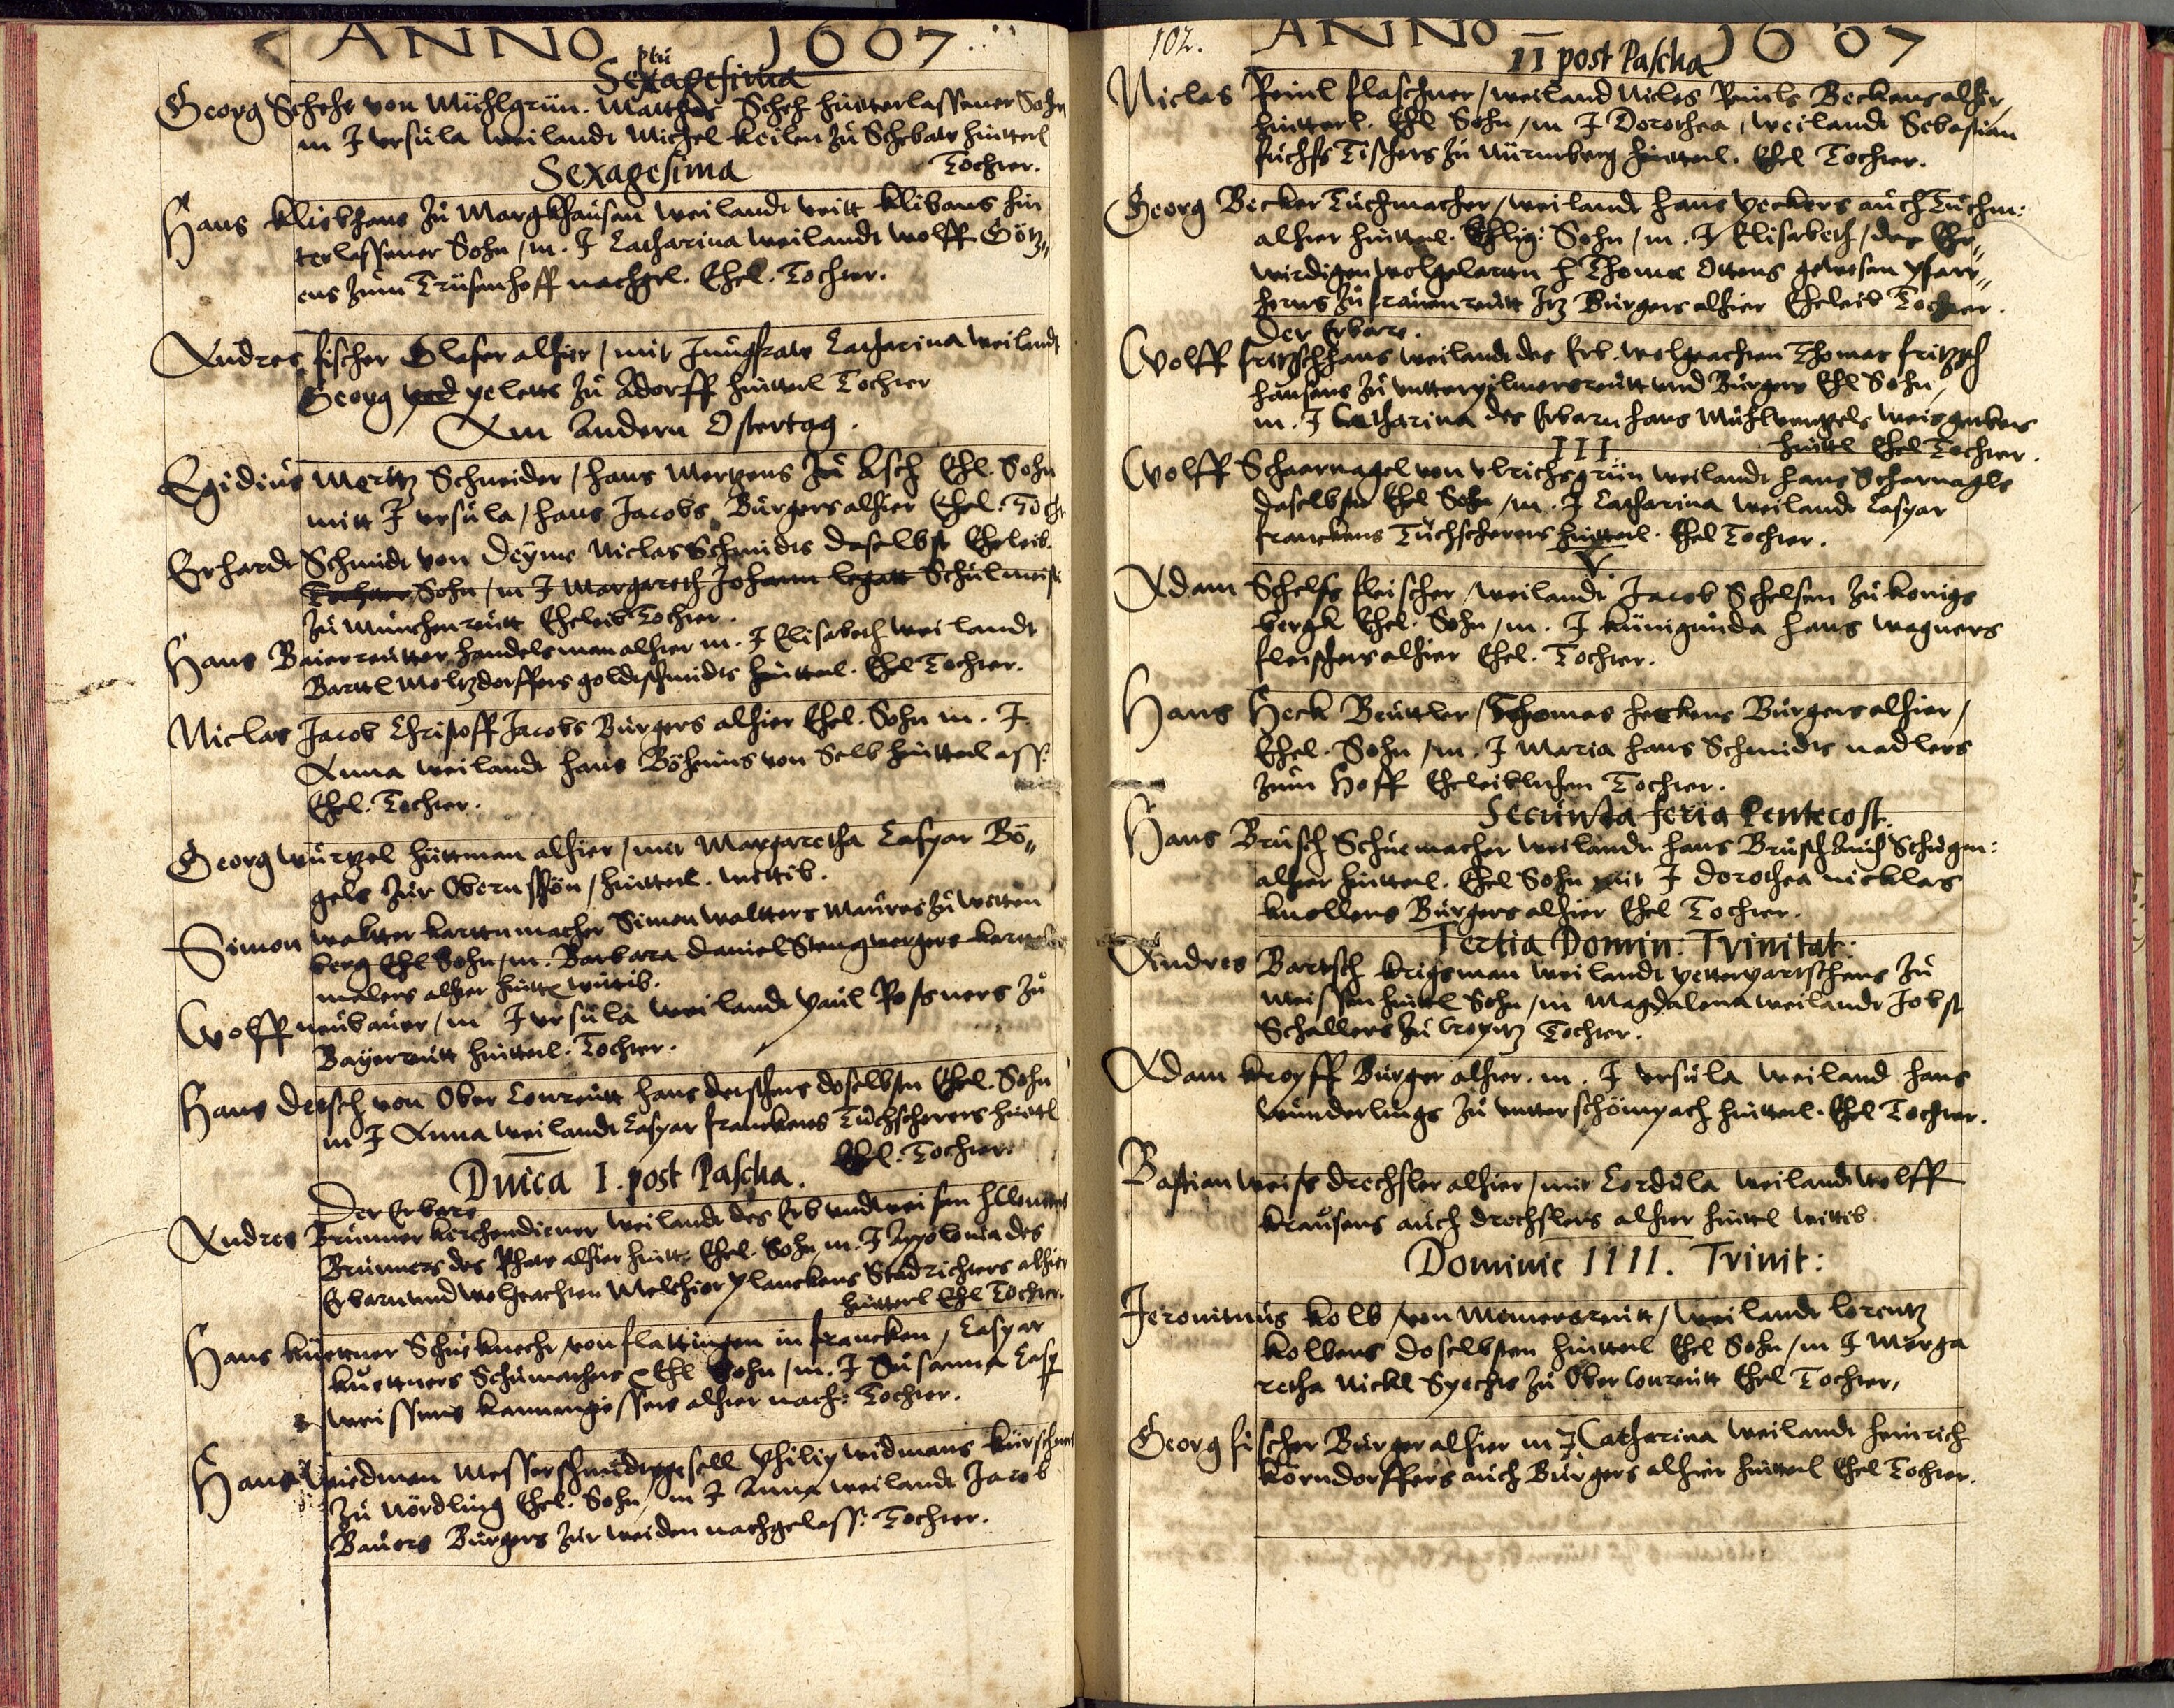 ANNO 1607
ptu
Sexagesima
Georg Schehe von Mühlgrün. Matthes Scheh hinterlassener Sohn
m J Ursula weilandt Michel Keilen zu Schebaw hinterl
Tochter.
Sexagesima
Hans Klibhans zu Margkhausen weilandt Veitt Klibans hin
terlassener Sohn / m. J Catharina weilandt Wolff Götz„
ens zum Trüsenhoff nachgel. Ehel. Tochter.
Andres Fischer Glaser alhier / mit Jungfraw Catharina weilandt
Georg peletts zu Adorff hintterl Tochter
Am Andern Ostertag.
Egidius Mertz Schneider / Hans Mertzens zu Asch Ehl. Sohn
mitt J Ursula / Hans Jacobs Bürgers alhier Ehel. Tochr
Erhardt Schmidt von Deyme Niclas Schmidts doselbst Eheleib.
Tochter Sohn / m J Margareth Johann legatt Schulmeist
zu Münchenreutt Eheleib Tochter.
Hans Baierreutter handelsman alhier m. J Elisabeth weilandt
Barttl Woltzdorffers goldtschmidts hintterl. Ehel Tochter.
Niclas Jacob Christoff Jacobs Bürgers alhier Ehel. Sohn m. J
Anna weilandt Hans Böheims von Selb hintterlass.
Ehel. Tochter.
Georg Würtzel hüttman alhier / mit Margaretha Caspar Bö„
gels zur Obernschön / hintterl. wittib.
Simon Waltter karttnmacher Simon Waltters Maurers zu Witten
berg Ehl Sohn / m. Barbara Daniel Stengpergers kartn
malers alhier hintt wittib.
Wolff Neubauer / m J Ursula weilandt Paul Rossners zu
Bayerreutt hintterl. Tochter.
Hans Detsch von Ober Lonreutt Hans Detschens doselbsten Ehel. Sohn
m J Anna weilandt Caspar Franckens Tuchscherers hintl
Ehl. Tochter.
Dnica I. post Pascha.
Der Erbare
Andres Brunner Kirchendiener weilandt des Erb undt weisen H Clement
Brunners des Rhats alhier hintt. Ehel. Sohn m. J Appolonia des
Erbarn und wolgeachten Melchior Planckens Stadtrichters alhier
hintterl Ehl Tochter.
Hans Kuettner Schuknecht von Flattingen in Francken / Caspar
Kuettners Schumachers Ehl Sohn / m. J Susanna Casp
Weissens kannengiessers alhier nach: Tochter.
Hans Widman Messerschmidtgesell Philip Widmans kürschners
zu Nördling Ehel. Sohn / m J Anna weilandt Jacob
Bauers Bürgers zur Weiden nachgelass. Tochter.
102.
ANNO 1607
II post Pascha
Niclas Reinl Flaschner / weiland Niclas Reinls Beckens alhier,
hintterl. Ehl Sohn / m J Dorothea / weilandt Sebastian
Fuchss Tischers zu Nürnberg hintterl. Ehel Tochter.
Georg Becker Tuchmacher / weilandt Hans peckers auch Tuchm:
alhier hintterl. Ehlig. Sohn / m. J Elisabeth / des Ehr„
wirdigen wolgelarten H Thomae Ottens gewesen pfarr„
herns zu Frauenreutt Itz Bürgers alhier Eheleib Tochter.
Der Erbare.
Wolff Fritzschhans weilandt des Erb. wolgeachten Thomas Fritzsch
hansens zu untterpilmersreutt und Bürgers Ehl Sohn /
m. J Catharina des Erbarn Hans Mühlwenzels Weisgerbers
hintl Ehel Tochter.
III
Wolff Scharnagel von Ulrichsgrün weilandt Hans Scharnagls
daselbsten Ehel Sohn / m. J Catharina weilandt Caspar
Franckens Tuchscherers hintterl. Ehel Tochter.
V.
Adam Schelss Fleischer / weilandt Jacob Schelsen zu Konigs
bergk Ehel. Sohn / m. J Kunigunda Hans Wagners
Fleischers alhier Ehel. Tochter.
Hans Heck Beuttler / Thomas Heckens Bürgers alhier /
Ehel. Sohn / m. J Maria Hans Schmidts nadlers
zum Hoff Eheleiblichen Tochter.
Secunda feria Pentecost.
Hans Brusch Schuemacher weilandt Hans Brusch auch Schuem:
alhier hintterl. Ehel Sohn mit J Dorothea Nicklas
Knollens Bürgers alhier Ehel Tochter.
Tertia Domin: Trinitat:
Andres Bartsch Krigsman weilandt petter partschens zu
Meissen hintl Sohn / m Magdalena weilandt Jobst
Schallers zu Cropitz Tochter.
Adam Kropff Bürger alhier. m. J Ursula weiland Hans
Wunderlings zu untterschömpach hintterl. Ehel Tochter.
Bastian Weiss Drechsler alhier / mit Cordula weilandt Wolff
Krausens auch Drechslers alhier hintl Wittib.
Dominic IIII. Trinit:
Jeronimus Kolb / von Momersreutt / weilandt Lorentz
Kolbens doselbsten hintterl Ehel Sohn / m J Marga
retha Nickl Spechts zu Ober Lonreutt Ehel Tochter,
Georg Fischer Bürger alhier m J Catharina weilandt Heinrich
Körndorffers auch Bürgers alhier hintterl Ehel Tochter.